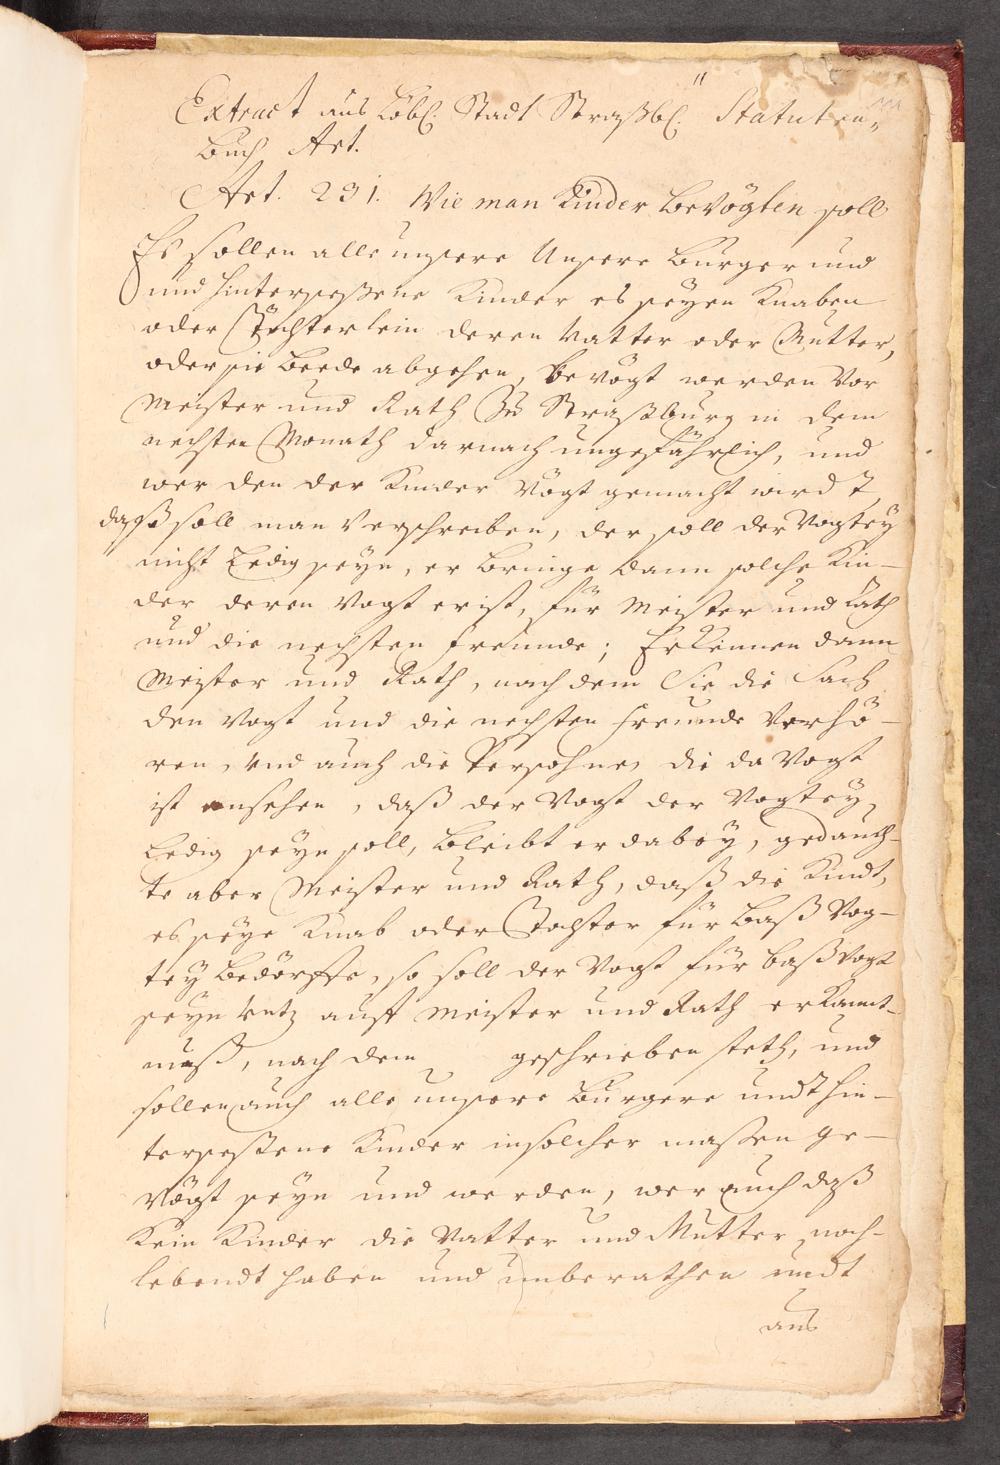 Extract aus Löbl. Stadt Straßbl. Statuten„
buch Art.
Art. 231. Wie man Kinder bevögten soll
Es sollen alle unsere Unsere Burger und
und hintersessene Kinder es seyen Knaben
oder Töchterlein deren Vatter oder Mutter,
oder sie beede abgehen, bevögt werden vor
Meister und Rath zu Straßburg in dem
nechsten Monath darnach ungefährlich, und
wer den der Kinder Vögt gemacht wird t,
daß soll man verschreiben, der soll der Vogtey
nicht Ledig seyn, er bringe dann solche Kin-
der deren Vogt er ist, für Meister und Räth
und die nechsten freunde; Erkennen dann
Meister und Rath, nach dem Sie die Sach
den Vogt und die nechsten freunde verhö-
ren, und auch die Persohne, die da Vogt
ist ansehen, daß der Vogt der Vogtey,
Ledig seyn soll, bleibt er dabey, gedauch-
te aber Meister und Rath, daß die Kindt,
es seye Knab oder Tochter für baß Vog-
tey bedörffe, so soll der Vogt für baß Vogt
seyn untz auff Meister und Rath erkannt-
nuß, nach dem geschrieben steth, und
sollen auch alle unsere Burgere undt hin-
tersessene Kinder in solcher massen ge-
vögt seyn und werden, wer auch daß
Kein Kinder die Vatter und Mutter noch-
lebendt haben und unberathen undt
aus